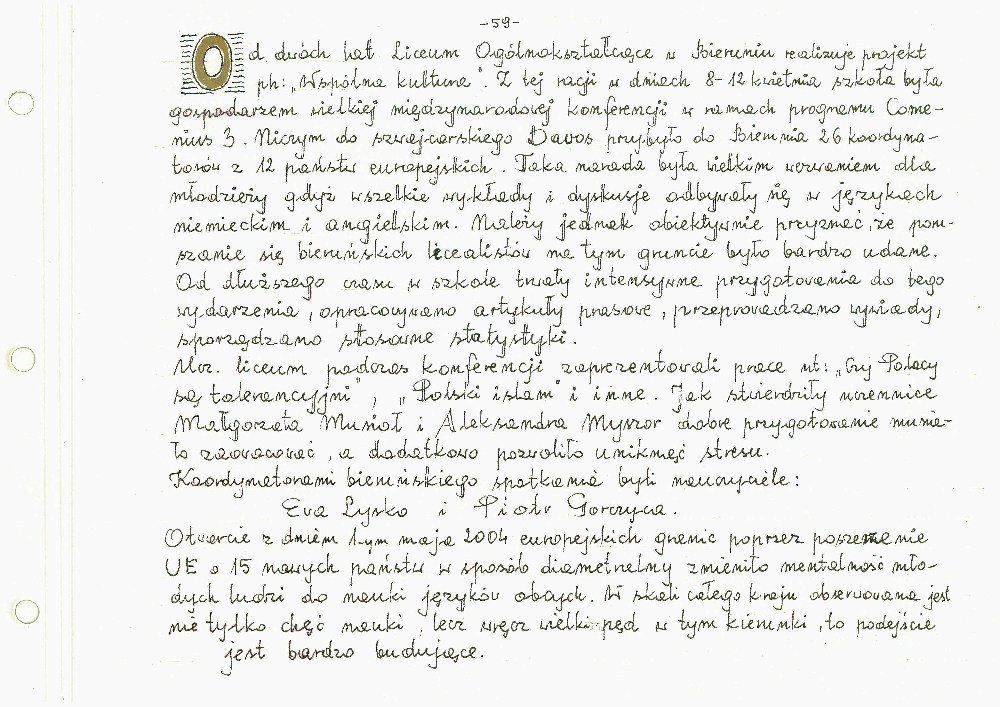 -59-
Od dwóch lat Liceum Ogólnokształcące w Bieruniu realizuje projekt
ph: „Wspólna kultura". Z tej racji w dniach 8-12 kwietnia szkoła była
gospodarzem wielkiej międzynarodowej konferencji w ramach programu Come-
nius 3. Niczym do szwajcarskiego Davos przybyło do Bierunia 26 koordyna-
torów z 12 państw europejskich. Taka narada była wielkim wezwaniem dla
młodzieży gdyż wszelkie wykłady i dyskusje odbywały się w językach
niemieckim i angielskim. Należy jednak obiektywnie przyznać, że poru-
szanie się bieruńskich licealistów na tym gruncie było bardzo udane.
Od dłuższego czasu w szkole trwały intensywne przygotowania do tego
wydarzenia, opracowywano artykuły prasowe, przeprowadzano wywiady,
sporządzano stosowne statystyki.
M.in. liceum podczas konferencji zaprezentowali prace nt: „Czy Polacy
są tolerancyjni", „Polski islam" i inne. Jak stwierdziły uczennice
Małgorzata Musioł i Aleksandra Myszor dobre przygotowanie musia-
ło zaowocować, a dodatkowo pozwoliło uniknąć stresu.
Koordynatorami bieruńskiego spotkania byli nauczyciele:
Ewa Łysko i Piotr Gorczyca.
Otwarcie z dniem 1-ym maja 2004 europejskich granic poprzez poszerzenie
UE o 15 nowych państw w sposób diametralny zmieniło mentalność mło-
dych ludzi do nauki języków obcych. W skali całego kraju obserwowana jest
nie tylko chęć nauki, lecz wręcz wielki pęd w tym kierunku, to podejście
jest bardzo budujące.